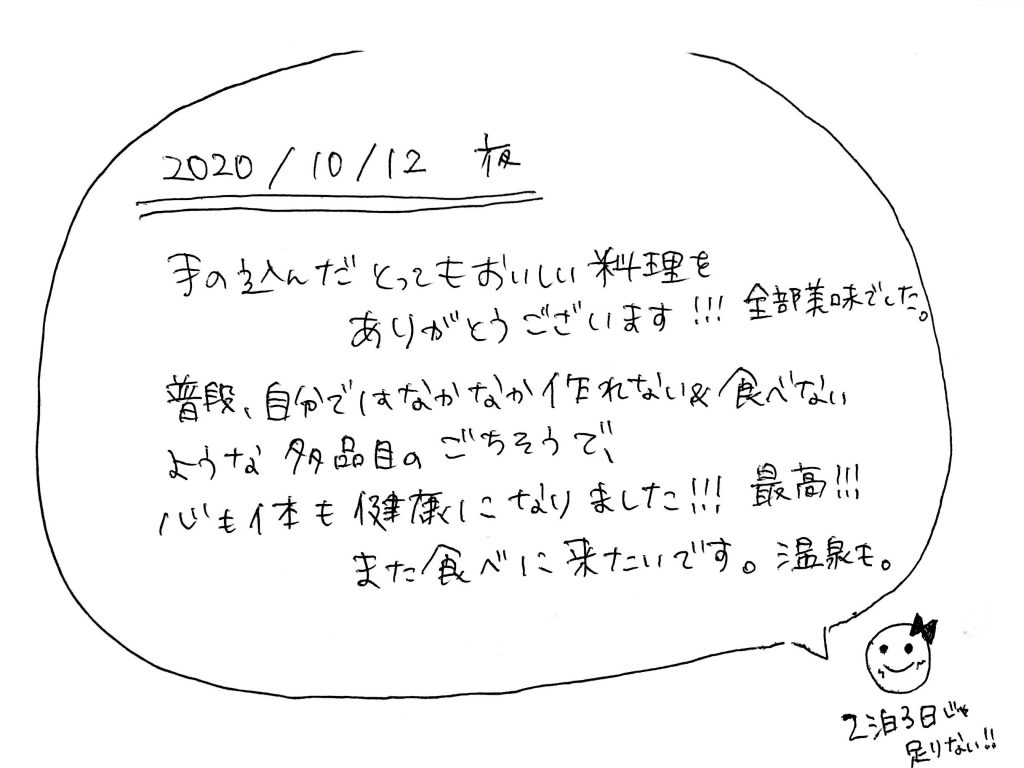 2020/10/12 夜
手の込んだとってもおいしい料理を
ありがとうございます!!! 全部美味でした。
普段、自分ではなかなか作れない&食べない
ような多品目のごちそうで、
心も体も健康になりました!!! 最高!!!
また食べに来たいです。温泉も。
2泊3日じゃ
足りない!!